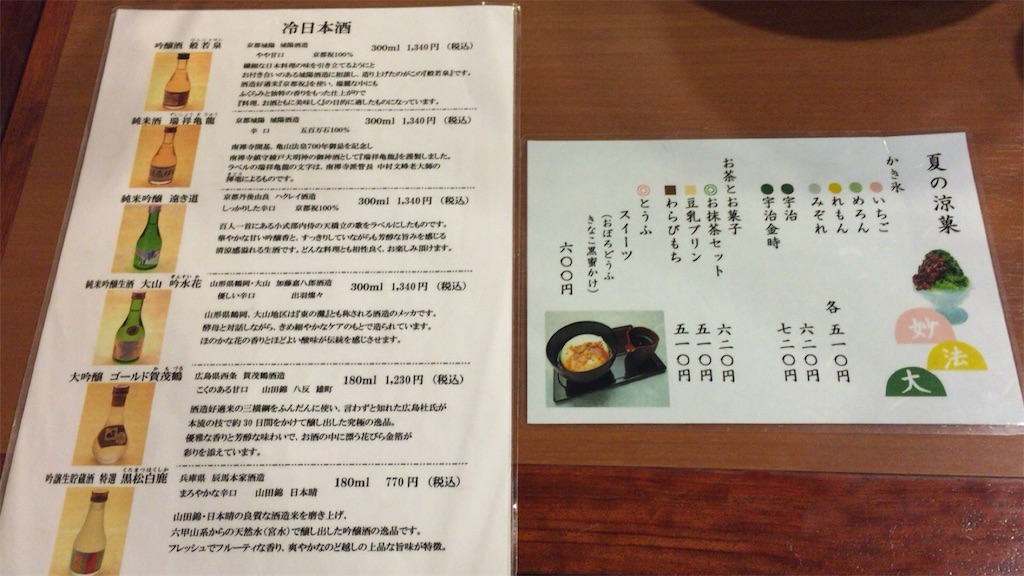 冷日本酒
吟醸酒 般若泉
京都城陽 城陽酒造
300ml 1,340円 (税込)
やや甘口 京都祝100%
繊細な日本料理の味を引き立てるようにと
お付き合いのある城陽酒造に相談し、造り上げたのがこの『般若泉』です。
酒造好適米『京都祝』を使い、端麗な中にも
ふくらみと独特の香りをもった仕上がりで
『料理、お酒ともに美味しく』の目的に適したものになっています。
純米酒 瑞祥亀龍
京都城陽 城陽酒造
300ml 1,340円 (税込)
辛口 五百万石100%
南禅寺開基、亀山法皇700年御忌を記念し
南禅寺鎮守綾戸大明神の御神酒として『瑞祥亀龍』を謹製しました。
ラベルの瑞祥亀龍の文字は、南禅寺派管長 中村文峰老大師の
揮毫によるものです。
純米吟醸 遠き道
京都丹後由良 ハクレイ酒造
300ml 1,340円 (税込)
しっかりした辛口 京都祝100%
百人一首にある小式部内侍の天橋立の歌をラベルにしたものです。
華やかな甘い吟醸香と、すっきりしていながらも芳醇な旨みを感じる
清涼感溢れる生酒です。どんな料理とも相性良く、お楽しみ頂けます。
純米吟醸生酒 大山 吟水花
ぎんすいか
山形県鶴岡・大山 加藤嘉八郎酒造
300ml 1,340円 (税込)
優しい辛口 出羽燦々
山形県鶴岡、大山地区は『東の灘』とも称される酒造のメッカです。
酵母と対話しながら、きめ細やかなケアのもとで造られています。
ほのかな花の香りとほどよい酸味が伝統を感じさせます。
大吟醸 ゴールド賀茂鶴
かもづる
広島県西条 賀茂鶴酒造
180ml 1,230円 (税込)
こくのある甘口 山田錦 八反 雄町
酒造好適米の三横綱をふんだんに使い、言わずと知れた広島杜氏が
本流の技で約30日間をかけて醸し出した究極の逸品。
優雅な香りと芳醇な味わいで、お酒の中に漂う花びら金箔が
彩りを添えています。
吟醸生貯蔵酒 特選 黒松白鹿
くろまつはくしか
兵庫県 辰馬本家酒造
180ml 770円 (税込)
まろやかな辛口 山田錦 日本晴
山田錦・日本晴の良質な酒造米を磨き上げ、
六甲山系からの天然水(宮水)で醸し出した吟醸酒の逸品です。
フレッシュでフルーティな香り、爽やかなのど越しの上品な旨味が特徴。
夏の涼菓
かき氷
いちご
めろん
れもん
みぞれ
各 五一〇円
宇治 六二〇円
宇治金時 七二〇円
お茶とお菓子
お抹茶セット 六二〇円
豆乳プリン 五一〇円
わらびもち 五一〇円
とうふ
スイーツ
(おぼろどうふ
きなこ黒蜜かけ)
六〇〇円
妙
法
大